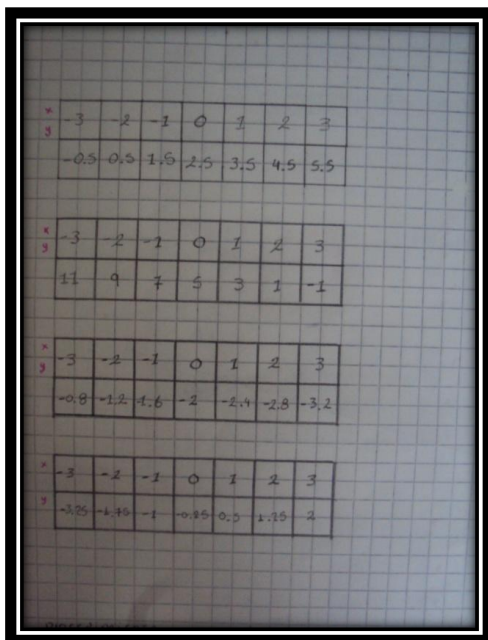 x -3 -2 -1 0 1 2 3
y -0.5 0.5 1.5 2.5 3.5 4.5 5.5
x -3 -2 -1 0 1 2 3
y 11 9 7 5 3 1 -1
x -3 -2 -1 0 1 2 3
y -0.8 -1.2 -1.6 -2 -2.4 -2.8 -3.2
x -3 -2 -1 0 1 2 3
y -1 -0.25 0.5 1.25 2